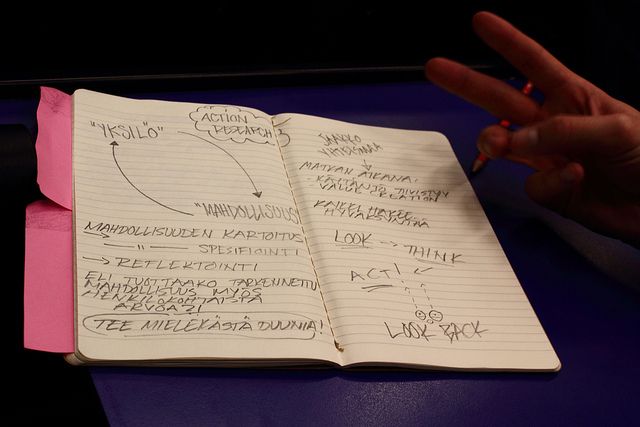 ACTION
RESEARCH
"YKSILÖ"
"MAHDOLLISUUS
MAHDOLLISUUDEN KARTOITUS
→ —"— SPESIFIOINTI
→ REFLEKTOINTI
ELI TUOTTAAKO TARKENNETTU
MAHDOLLISUUS MYÖS
HENKILÖKOHTAISTA
ARVOA?!
TEE MIELEKÄSTÄ DUUNIA!
MATKAN AIKANA:
TIIVISTYY
VALUE CREATION
KAIKEL
LOOK --> THINK
ACT!
LOOK BACK